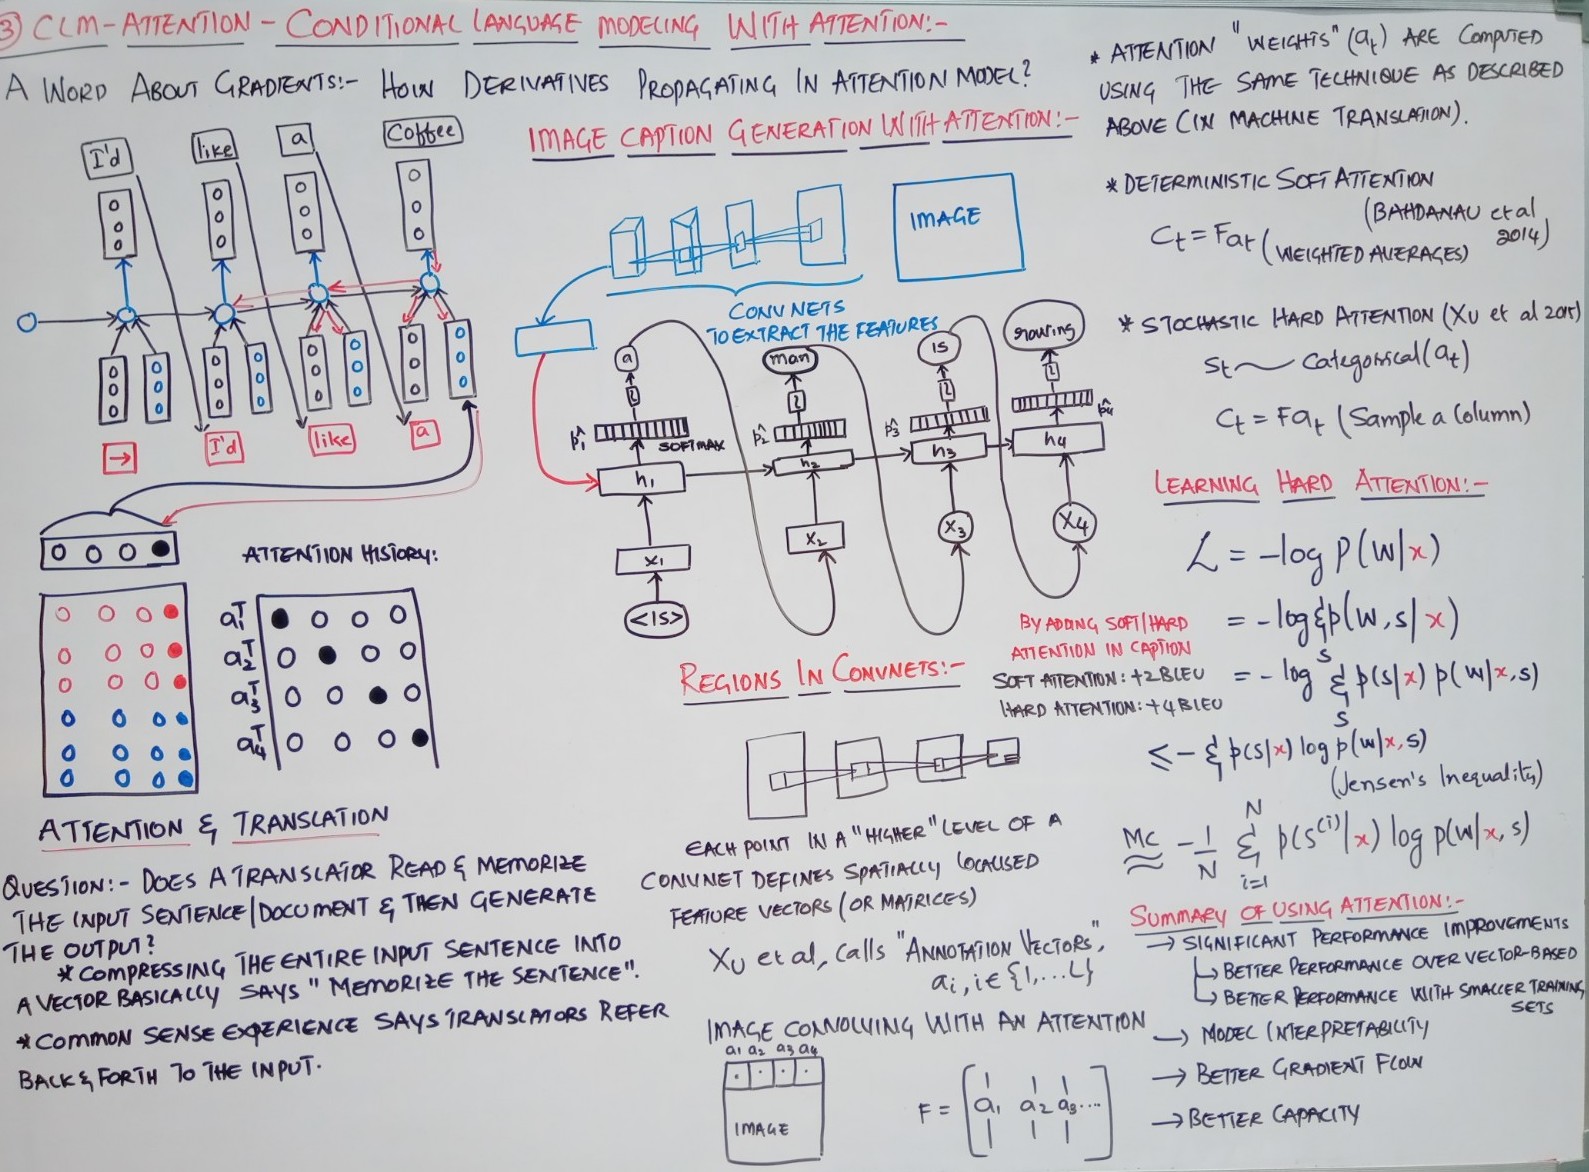 ③ CLM-ATTENTION - CONDITIONAL LANGUAGE MODELING WITH ATTENTION:-
A WORD ABOUT GRADIENTS:- HOW DERIVATIVES PROPAGATING IN ATTENTION MODEL?
I'd
like
a
Coffee
→
I'd
like
a
ATTENTION HISTORY:
a₁ᵀ
a₂ᵀ
a₃ᵀ
a₄ᵀ
ATTENTION & TRANSLATION
QUESTION:- DOES A TRANSLATOR READ & MEMORIZE
THE INPUT SENTENCE/DOCUMENT & THEN GENERATE
THE OUTPUT?
* COMPRESSING THE ENTIRE INPUT SENTENCE INTO
A VECTOR BASICALLY SAYS "MEMORIZE THE SENTENCE".
* COMMON SENSE EXPERIENCE SAYS TRANSLATORS REFER
BACK & FORTH TO THE INPUT.
IMAGE CAPTION GENERATION WITH ATTENTION:-
IMAGE
CONVNETS
TO EXTRACT THE FEATURES
a
man
is
rowing
p̂₁
SOFTMAX
p̂₂
p̂₃
p̂₄
h₁
h₂
h₃
h₄
x₁
x₂
x₃
x₄
<1S>
BY ADDING SOFT/HARD
ATTENTION IN CAPTION
SOFT ATTENTION: +2 BLEU
HARD ATTENTION: +4 BLEU
REGIONS IN CONVNETS:-
EACH POINT IN A "HIGHER" LEVEL OF A
CONVNET DEFINES SPATIALLY LOCALISED
FEATURE VECTORS (OR MATRICES)
XU et al, calls "ANNOTATION VECTORS",
aᵢ, i∈{1,...L}
IMAGE CONVOLVING WITH AN ATTENTION
a₁ a₂ a₃ a₄
IMAGE
F = [a₁ a₂ a₃....]
* ATTENTION "WEIGHTS" (aₜ) ARE COMPUTED
USING THE SAME TECHNIQUE AS DESCRIBED
ABOVE (IN MACHINE TRANSLATION).
* DETERMINISTIC SOFT ATTENTION
(BAHDANAU et al
2014)
Cₜ = Faₜ (WEIGHTED AVERAGES)
* STOCHASTIC HARD ATTENTION (XU et al 2015)
Sₜ ~ Categorical(aₜ)
Cₜ = Faₜ (Sample a Column)
LEARNING HARD ATTENTION:-
L = -log p(w|x)
= -log Σ p(w,s|x)
s
= -log Σ p(s|x) p(w|x,s)
s
≤ - Σ p(s|x) log p(w|x,s)
(Jensen's Inequality)
MC
≈ -1/N Σ p(s⁽ⁱ⁾|x) log p(w|x,s)
N
i=1
SUMMARY OF USING ATTENTION:-
→ SIGNIFICANT PERFORMANCE IMPROVEMENTS
↳ BETTER PERFORMANCE OVER VECTOR-BASED
↳ BETTER PERFORMANCE WITH SMALLER TRAINING
SETS
→ MODEL INTERPRETABILITY
→ BETTER GRADIENT FLOW
→ BETTER CAPACITY